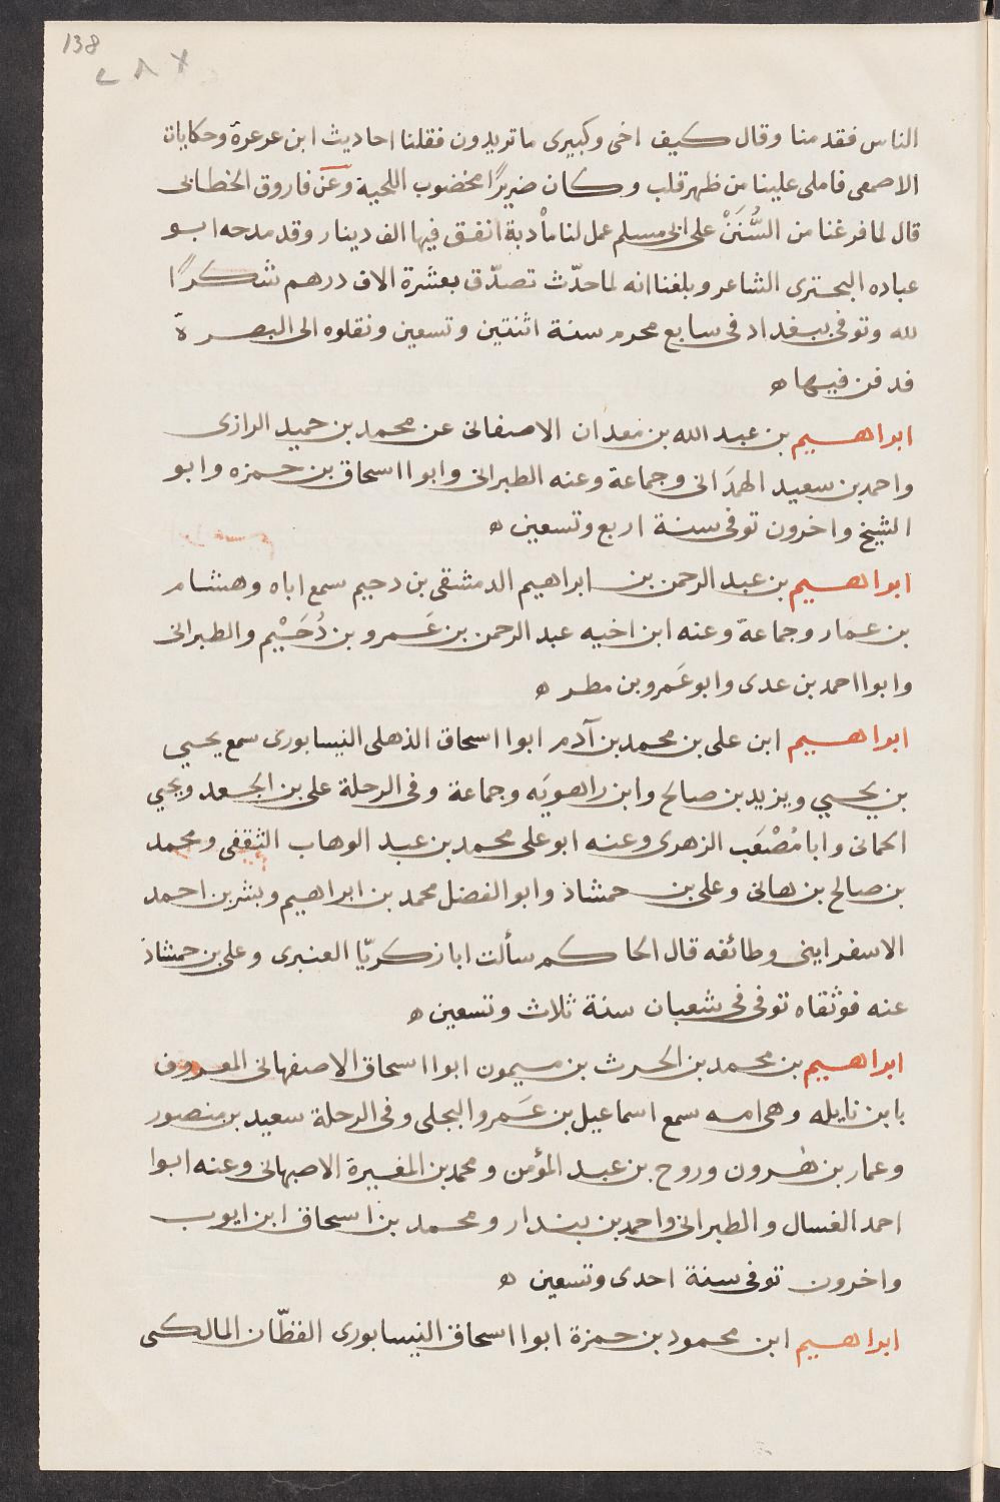 138
الناس فقد منا وقال كيف اخى وكبيرى ما تريدون فقلنا احاديث ابن عرعرة وحكايات
الاصمعى فاملى علينا من ظهر قلب وكان ضريرًا مخضوب اللحية وعن فاروق الخطابى
قال لما فرغنا من السُّنَنْ على ابى مسلم عمل لنا مأدبة انفق فيها الف دينار وقد مدحه ابو
عباده البحترى الشاعر وبلغنا انه لما حدّث تصدّق بعشرة الاف درهم شكرًا
لله وتوفى ببغداد فى سابع محرم سنة اثنتين وتسعين ونقلوه الى البصرة
فدفن فيها ه
ابراهيم بن عبد الله بن معدان الاصفانى عن محمد بن حميد الرازى
واحمد بن سعيد الهمدَانى وجماعة وعنه الطبرانى وابوا اسحاق بن حمزه وابو
الشيخ واخرون توفى سنة اربع وتسعين ه
ابراهيم بن عبد الرحمن بن ابراهيم الدمشقى بن دحيم سمع اباه وهشام
بن عمار وجماعة وعنه ابن اخيه عبد الرحمن بن عَمرو بن دُحَيْم والطبرانى
وابوا احمد بن عدى وابو عَمرو بن مطر ه
ابراهيم ابن على بن محمد بن آدم ابوا اسحاق الذهلى النيسابورى سمع يحيي
بن يحيي ويزيد بن صالح وابن راهويَه وجماعة وفى الرحلة على بن الجعد ويحيي
الحمانى وابا مُصْعَب الزهرى وعنه ابو على محمد بن عبد الوهاب الثقفى ومحمد
بن صالح بن هانى وعلى بن حمشاذ وابو الفضل محمد بن ابراهيم وبشر بن احمد
الاسفراينى وطائفه قال الحاكم سألت ابا زكريّا العنبرى وعلى بن حمشاذ
عنه فوثقاه توفى فى شعبان سنة ثلاث وتسعين ه
ابراهيم بن محمد بن الحرث بن ميمون ابوا اسحاق الاصفهانى المعروف
بابن نايله وهى امه سمع اسماعيل بن عَمرو البجلى وفى الرحلة سعيد بن منصور
وعمار بن هٰرون وروح بن عبد المؤمن ومحمد بن المغيرة الاصبهانى وعنه ابوا
احمد الغسال والطبرانى واحمد بن بندار ومحمد بن اسحاق ابن ايوب
واخرون توفى سنة احدى وتسعين ه
ابراهيم ابن محمود بن حمزة ابوا اسحاق النيسابورى القطّان المالكى